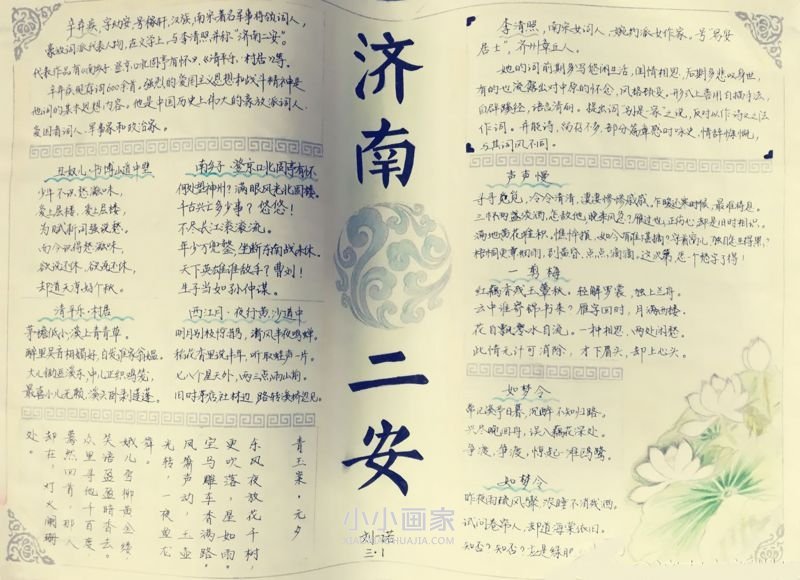 辛弃疾,字幼安,号稼轩,汉族,南宋著名军事将领词人,
豪放词派代表人物,在文学上,与李清照并称"济南二安"。
代表作品有《南乡子·登京口北固亭有怀》、《清平乐·村居》等。
辛弃疾现存词600余首,强烈的爱国主义思想和战斗精神是
他词的基本思想内容。他是中国历史上伟大的豪放派词人、
爱国者词人、军事家和政治家。
丑奴儿·书博山道中壁
少年不识愁滋味,
爱上层楼,爱上层楼,
为赋新词强说愁。
而今识得愁滋味,
欲说还休,欲说还休,
却道天凉好个秋。
南乡子·登京口北固亭有怀
何处望神州?满眼风光北固楼。
千古兴亡多少事?悠悠!
不尽长江滚滚流。
年少万兜鍪,坐断东南战未休。
天下英雄谁敌手?曹刘!
生子当如孙仲谋。
清平乐·村居
茅檐低小,溪上青青草。
醉里吴音相媚好,白发谁家翁媪。
大儿锄豆溪东,中儿正织鸡笼,
最喜小儿无赖,溪头卧剥莲蓬。
西江月·夜行黄沙道中
明月别枝惊鹊,清风半夜鸣蝉。
稻花香里说丰年,听取蛙声一片。
七八个星天外,两三点雨山前。
旧时茅店社林边,路转溪桥忽见。
青玉案·元夕
东风夜放花千树,
更吹落,星如雨。
宝马雕车香满路。
凤箫声动,玉壶
光转,一夜鱼龙
舞。
蛾儿雪柳黄金缕,
笑语盈盈暗香去。
众里寻他千百度,
蓦然回首,那人
却在,灯火阑珊
处。
济南二安
刘诺
三·1
李清照,南宋女词人,婉约派女作家,号"易安
居士",齐州章丘人。
她的词前期多写悠闲生活,闺情相思,后期多悲叹身世,
有的也流露出对中原的怀念,风格顿变。形式上善用白描手法,
自辟蹊径,语言清丽。提出词"别是一家"之说,反对以作诗文之法
作词。并能诗,留存不多,部分篇章感时咏史,情辞慷慨,
与其词风不同。
声声慢
寻寻觅觅,冷冷清清,凄凄惨惨戚戚。乍暖还寒时候,最难将息。
三杯两盏淡酒,怎敌他,晚来风急?雁过也,正伤心,却是旧时相识。
满地黄花堆积,憔悴损,如今有谁堪摘?守着窗儿,独自怎生得黑?
梧桐更兼细雨,到黄昏、点点、滴滴。这次第,怎一个愁字了得!
一剪梅
红藕香残玉簟秋。轻解罗裳,独上兰舟。
云中谁寄锦书来?雁字回时,月满西楼。
花自飘零水自流。一种相思,两处闲愁。
此情无计可消除,才下眉头,却上心头。
如梦令
常记溪亭日暮,沉醉不知归路。
兴尽晚回舟,误入藕花深处。
争渡,争渡,惊起一滩鸥鹭。
如梦令
昨夜雨疏风骤,浓睡不消残酒。
试问卷帘人,却道海棠依旧。
知否?知否?应是绿肥
小小画家
XIAOXIAOHUAJIA.COM